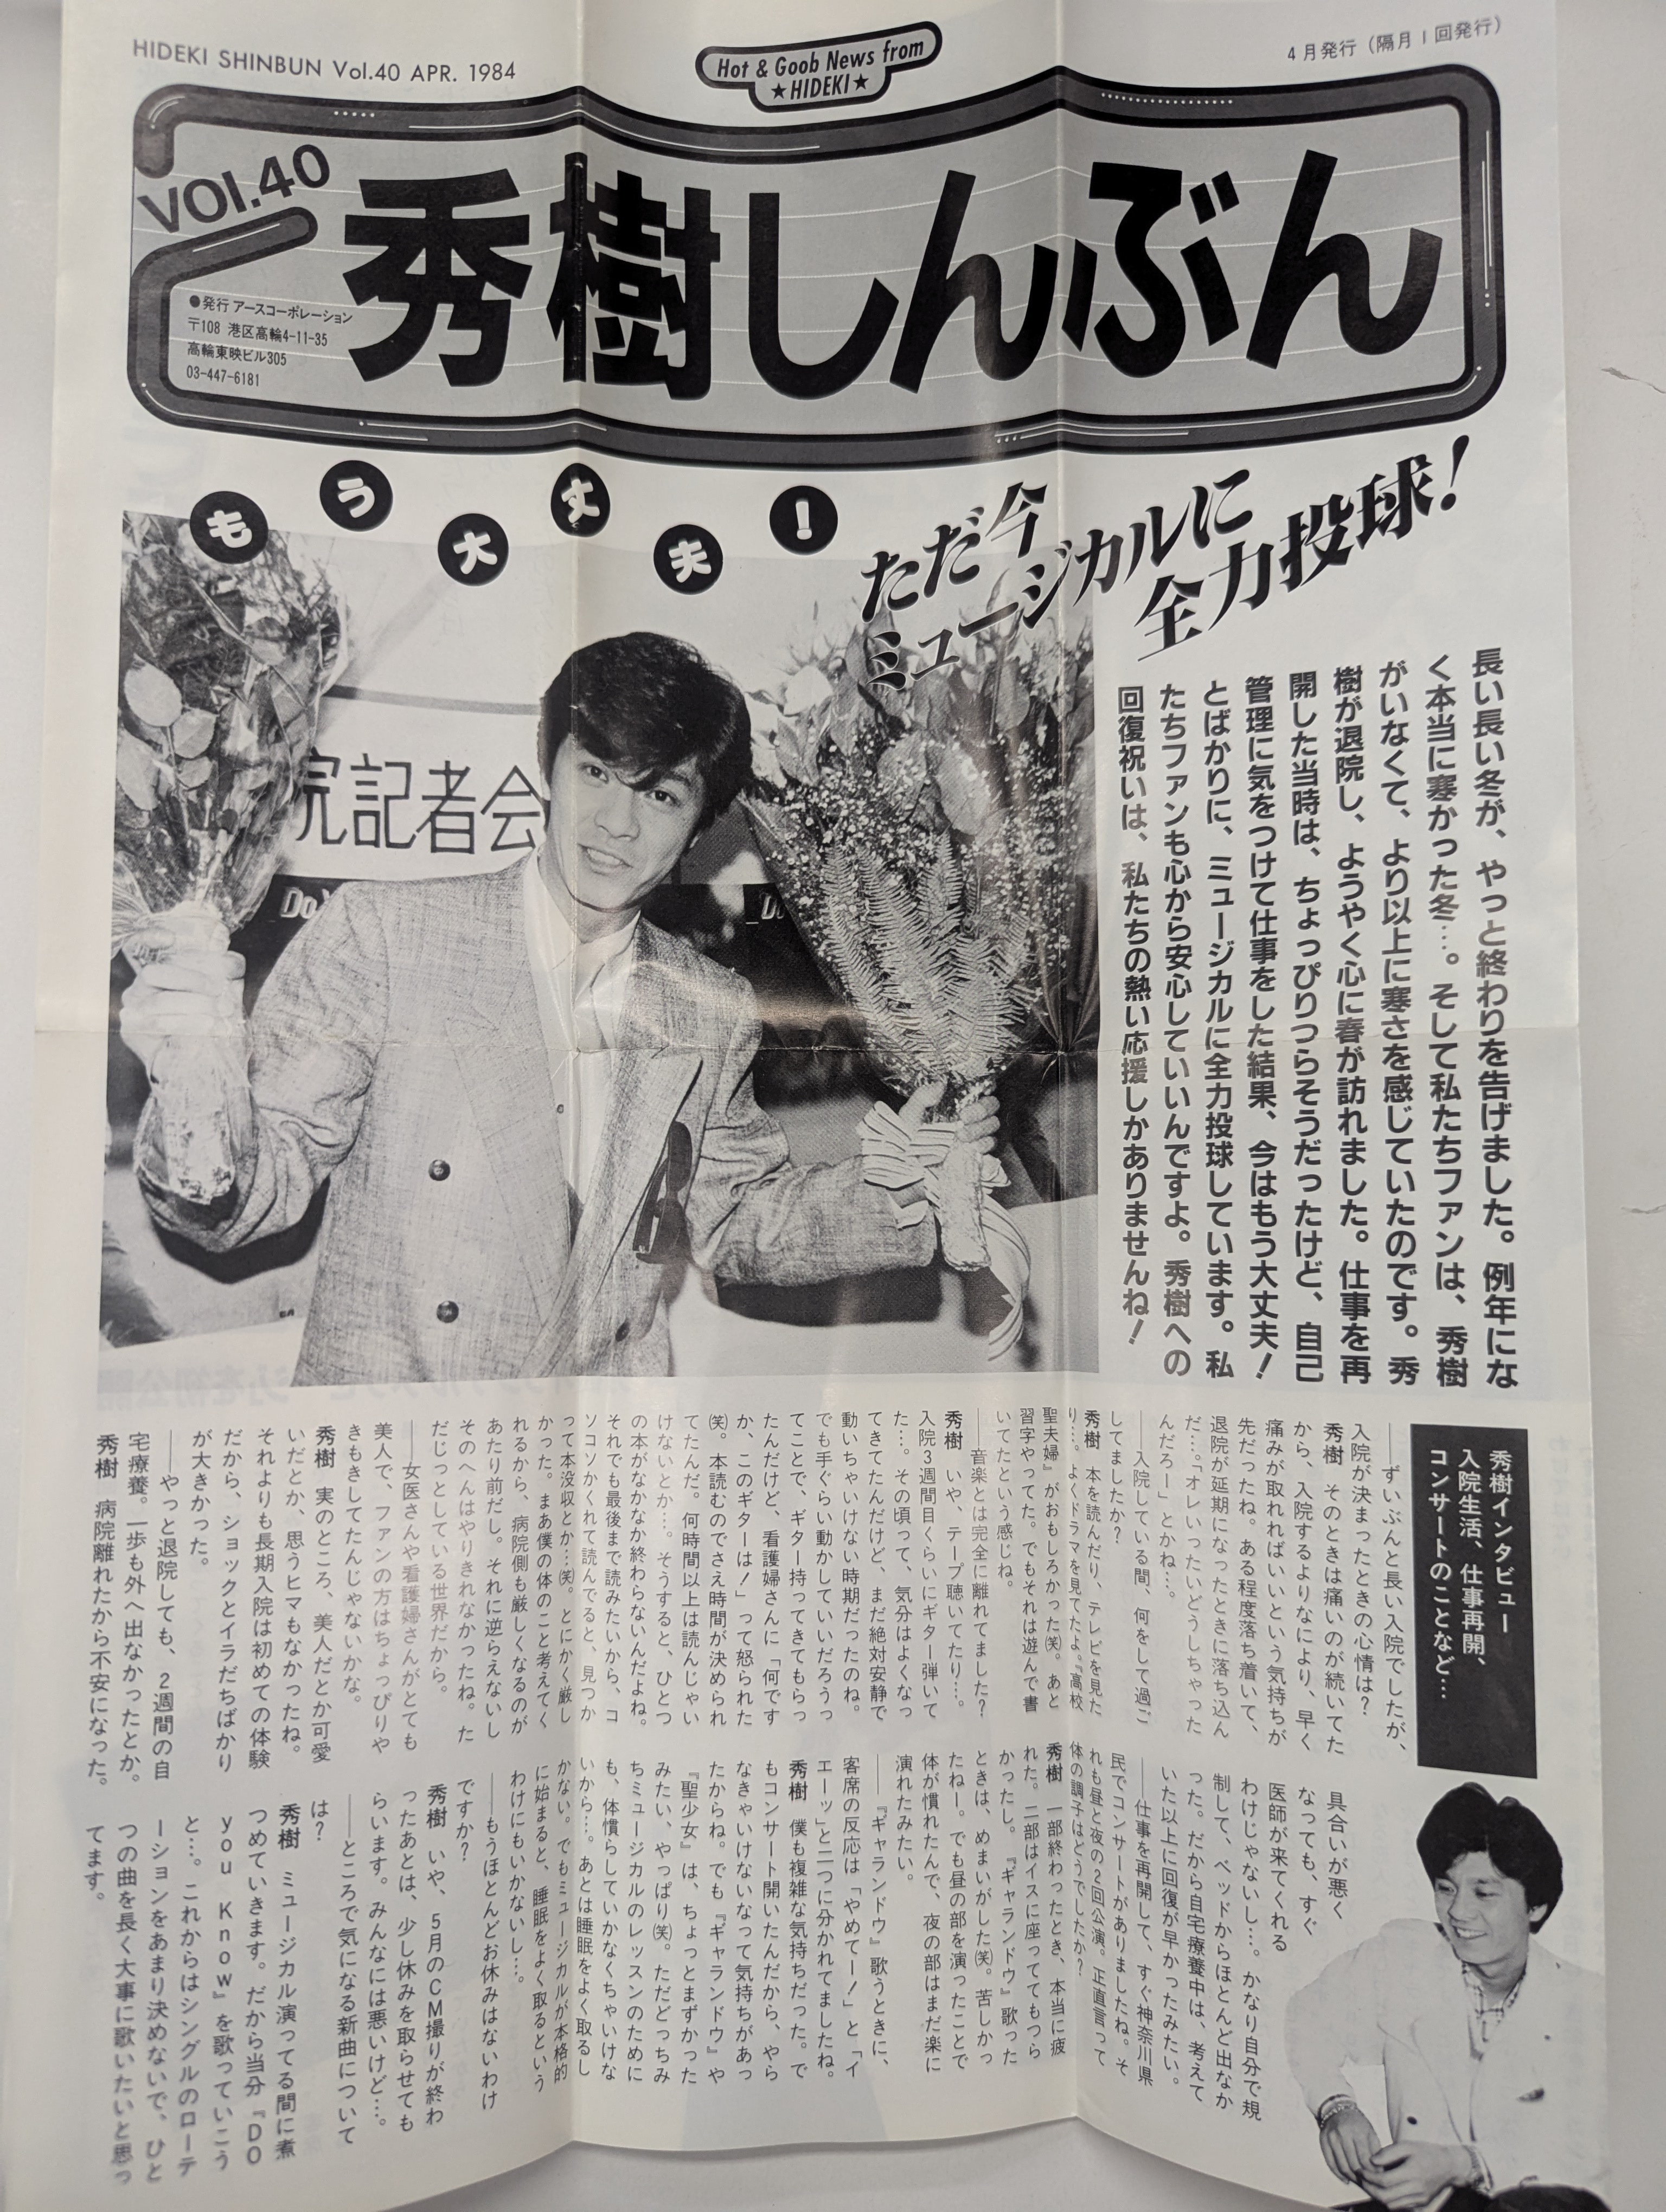 HIDEKI SHINBUN Vol.40 APR. 1984
Hot & Goob News from
★HIDEKI★
4月発行（隔月1回発行）
VOl.40
秀樹しんぶん
●発行 アースコーポレーション
〒108 港区高輪4-11-35
高輪東映ビル305
03-447-6181
もう大丈夫!
ただ今
ミュージカルに
全力投球!
院記者会
Do
長い長い冬が、やっと終わりを告げました。例年にな
く本当に寒かった冬…。そして私たちファンは、秀樹
がいなくて、より以上に寒さを感じていたのです。秀
樹が退院し、ようやく心に春が訪れました。仕事を再
開した当時は、ちょっぴりつらそうだったけど、自己
管理に気をつけて仕事をした結果、今はもう大丈夫!
とばかりに、ミュージカルに全力投球しています。私
たちファンも心から安心していいんですよ。秀樹への
回復祝いは、私たちの熱い応援しかありませんね!
秀樹インタビュー
入院生活、仕事再開、
コンサートのことなど…
──ずいぶんと長い入院でしたが、
入院が決まったときの心情は?
秀樹　そのときは痛いのが続いてた
から、入院するよりなにより、早く
痛みが取れればいいという気持ちが
先だったね。ある程度落ち着いて、
退院が延期になったときに落ち込ん
だ…。「オレいったいどうしちゃった
んだろー」とかね…。
──入院している間、何をして過ご
してましたか?
秀樹　本を読んだり、テレビを見た
り…。よくドラマを見てたよ。『高校
聖夫婦』がおもしろかった(笑)。あと
習字やってた。でもそれは遊んで書
いてたという感じね。
──音楽とは完全に離れてました?
秀樹　いや、テープ聴いてたり…。
入院3週間目くらいにギター弾いて
た…。その頃って、気分はよくなっ
てきてたんだけど、まだ絶対安静で
動いちゃいけない時期だったのね。
でも手ぐらい動かしていいだろうっ
てことで、ギター持ってきてもらっ
たんだけど、看護婦さんに「何です
か、このギターは!」って怒られた
(笑)。本読むのでさえ時間が決められ
てたんだ。何時間以上は読んじゃい
けないとか…。そうすると、ひとつ
の本がなかなか終わらないんだよね。
それでも最後まで読みたいから、コ
ソコソかくれて読んでると、見つか
って本没収とか…(笑)。とにかく厳し
かった。まあ僕の体のこと考えてく
れるから、病院側も厳しくなるのが
あたり前だし。それに逆らえないし
そのへんはやりきれなかったね。た
だじっとしている世界だから。
──女医さんや看護婦さんがとても
美人で、ファンの方はちょっぴりや
きもきしてたんじゃないかな。
秀樹　実のところ、美人だとか可愛
いだとか、思うヒマもなかったね。
それよりも長期入院は初めての体験
だから、ショックとイラだちばかり
が大きかった。
──やっと退院しても、2週間の自
宅療養。一歩も外へ出なかったとか。
秀樹　病院離れたから不安になった。
具合いが悪く
なっても、すぐ
医師が来てくれる
わけじゃないし…。かなり自分で規
制して、ベッドからほとんど出なか
った。だから自宅療養中は、考えて
いた以上に回復が早かったみたい。
──仕事を再開して、すぐ神奈川県
民でコンサートがありましたね。そ
れも昼と夜の2回公演。正直言って
体の調子はどうでしたか?
秀樹　一部終わったとき、本当に疲
れた。二部はイスに座っててもつら
かったし。『ギャランドゥ』歌った
ときは、めまいがした(笑)。苦しかっ
たねー。でも昼の部を演ったことで
体が慣れたんで、夜の部はまだ楽に
演れたみたい。
──『ギャランドゥ』歌うときに、
客席の反応は「やめてー!」と「イ
エーッ」と二つに分かれてましたね。
秀樹　僕も複雑な気持ちだった。で
もコンサート開いたんだから、やら
なきゃいけないなって気持ちがあっ
たからね。でも『ギャランドゥ』や
『聖少女』は、ちょっとまずかった
みたい、やっぱり(笑)。ただどっちみ
ちミュージカルのレッスンのために
も、体慣らしていかなくちゃいけな
いから…。あとは睡眠をよく取るし
かない。でもミュージカルが本格的
に始まると、睡眠をよく取るという
わけにもいかないし…。
──もうほとんどお休みはないわけ
ですか?
秀樹　いや、5月のCM撮りが終わ
ったあとは、少し休みを取らせても
らいます。みんなには悪いけど…。
──ところで気になる新曲について
は?
秀樹　ミュージカル演ってる間に煮
つめていきます。だから当分『DO
you Know』を歌っていこう
と…。これからはシングルのローテ
ーションをあまり決めないで、ひと
つの曲を長く大事に歌いたいと思っ
てます。